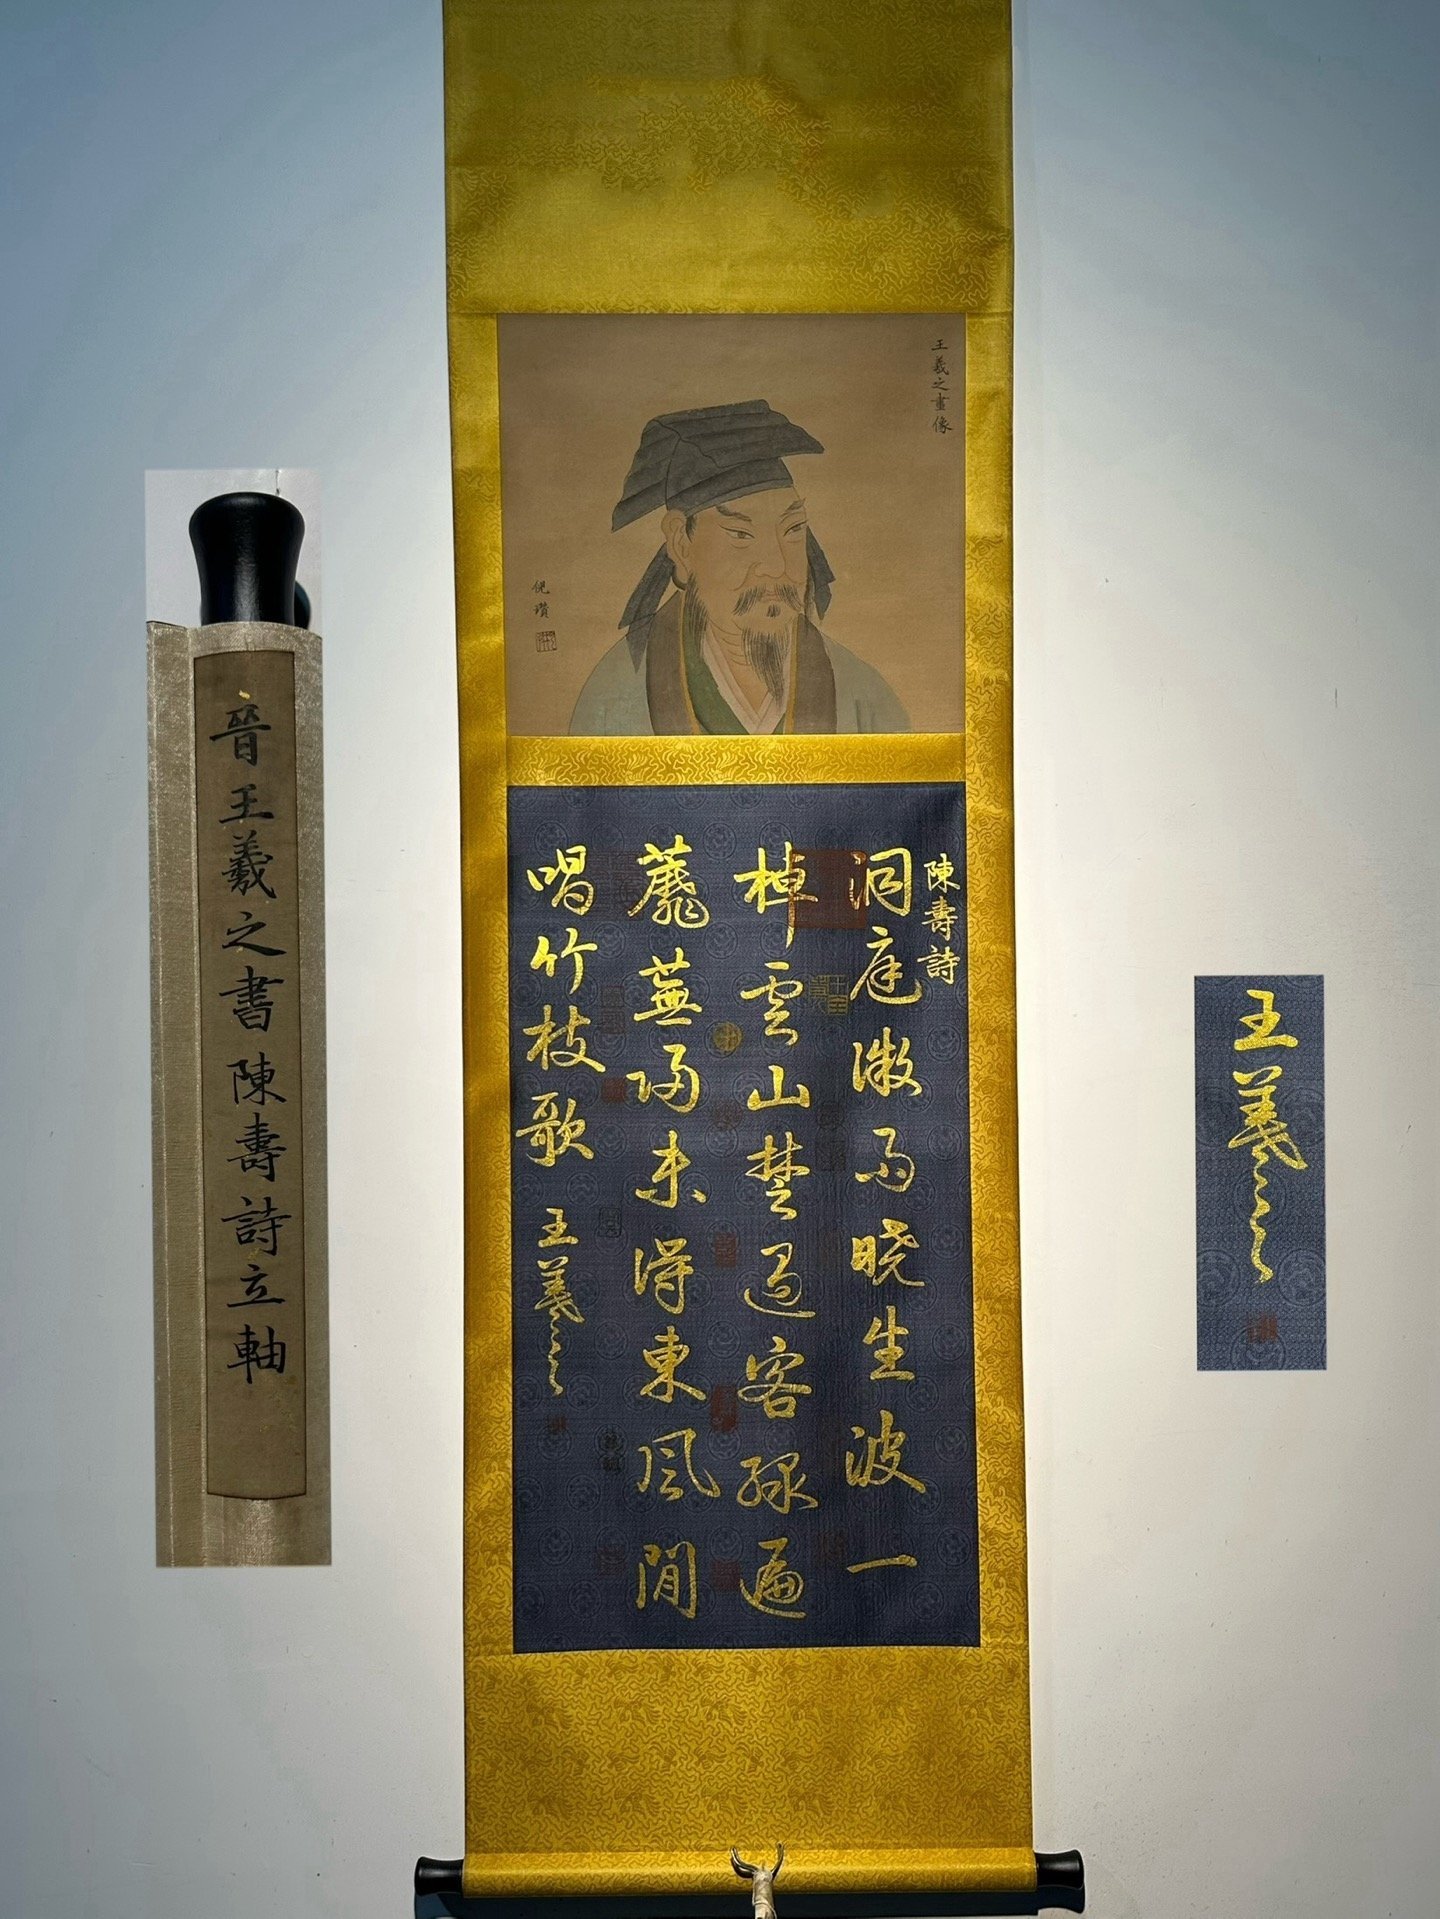 王羲之畫像
倪瓚
晉王羲之書陳壽詩立軸
陳壽詩
洞庭微雨晓生波一
棹雲山楚過客綠遍
蘼蕪歸未得東風閒
唱竹枝歌
王羲之
王羲之